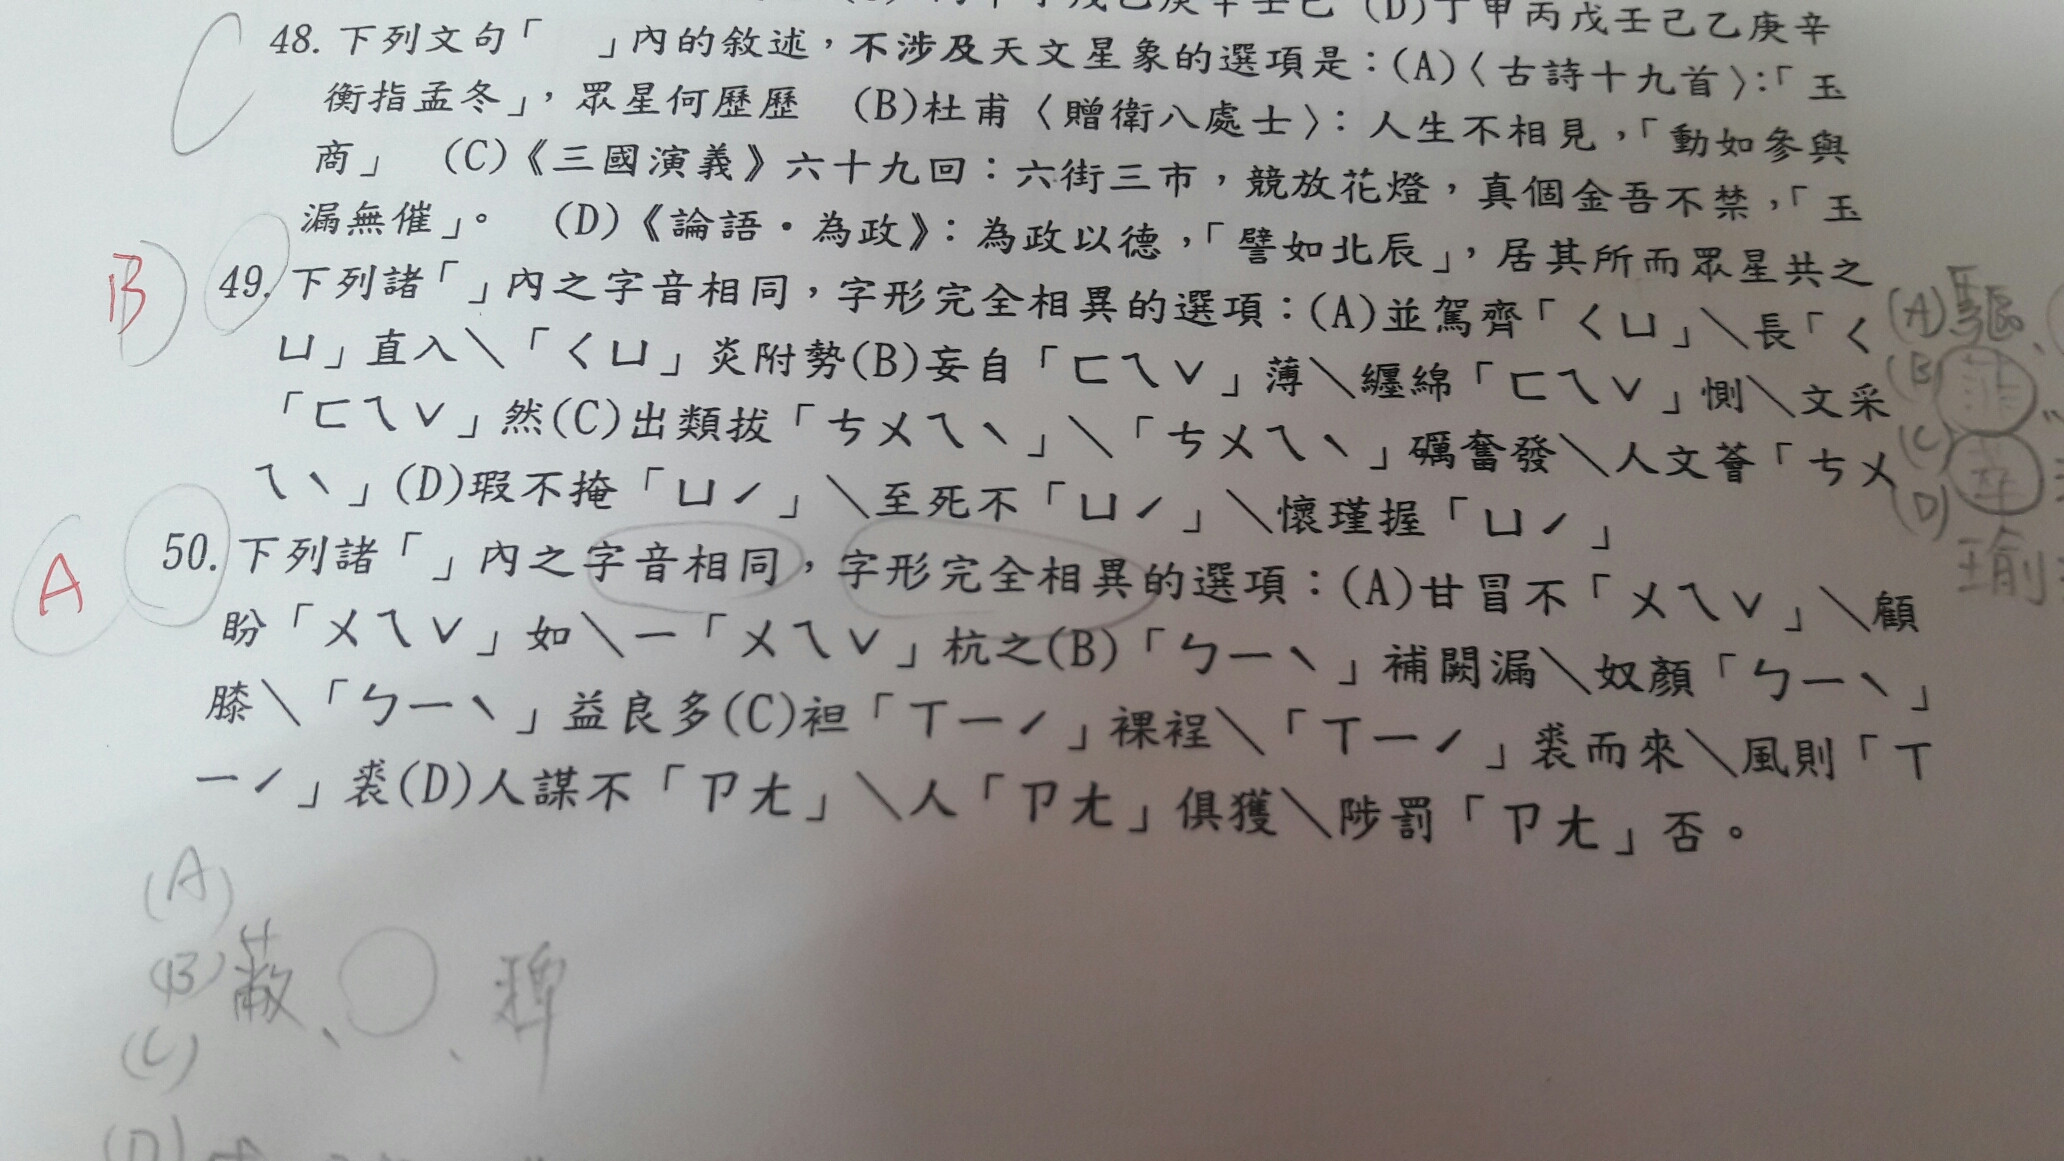 (D)丁甲丙戊壬己乙庚辛
48. 下列文句「　」內的敘述，不涉及天文星象的選項是：(A)〈古詩十九首〉：「玉
衡指孟冬」，眾星何歷歷　(B)杜甫〈贈衛八處士〉：人生不相見，「動如參與
商」　(C)《三國演義》六十九回：六街三市，競放花燈，真個金吾不禁，「玉
漏無催」。　(D)《論語・為政》：為政以德，「譬如北辰」，居其所而眾星共之
49. 下列諸「」內之字音相同，字形完全相異的選項：(A)並駕齊「ㄑㄩ」＼長「ㄑ
ㄩ」直入＼「ㄑㄩ」炎附勢(B)妄自「ㄈㄟˇ」薄＼纏綿「ㄈㄟˇ」惻＼文采
「ㄈㄟˇ」然(C)出類拔「ㄘㄨㄟˋ」＼「ㄘㄨㄟˋ」礪奮發＼人文薈「ㄘㄨ
ㄟˋ」(D)瑕不掩「ㄩˊ」＼至死不「ㄩˊ」＼懷瑾握「ㄩˊ」
50. 下列諸「」內之字音相同，字形完全相異的選項：(A)甘冒不「ㄨㄟˇ」＼顧
盼「ㄨㄟˇ」如＼一「ㄨㄟˇ」杭之(B)「ㄅㄧˋ」補闕漏＼奴顏「ㄅㄧˋ」
膝＼「ㄅㄧˋ」益良多(C)袒「ㄒㄧˊ」裸裎＼「ㄒㄧˊ」裘而來＼風則「ㄒ
ㄧˊ」裘(D)人謀不「ㄗㄤ」＼人「ㄗㄤ」俱獲＼陟罰「ㄗㄤ」否。
C
B
A
(A)驅、
(B)菲
(C)萃
(D)
瑜
(A)
(B)蔽、〇、裨
(C)
(D)